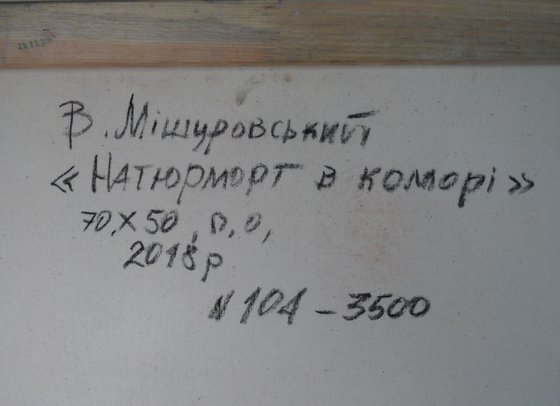 В. Мішуровський
«Натюрморт в коморі»
70 х 50, п, о,
2018 р
N 104 – 3500